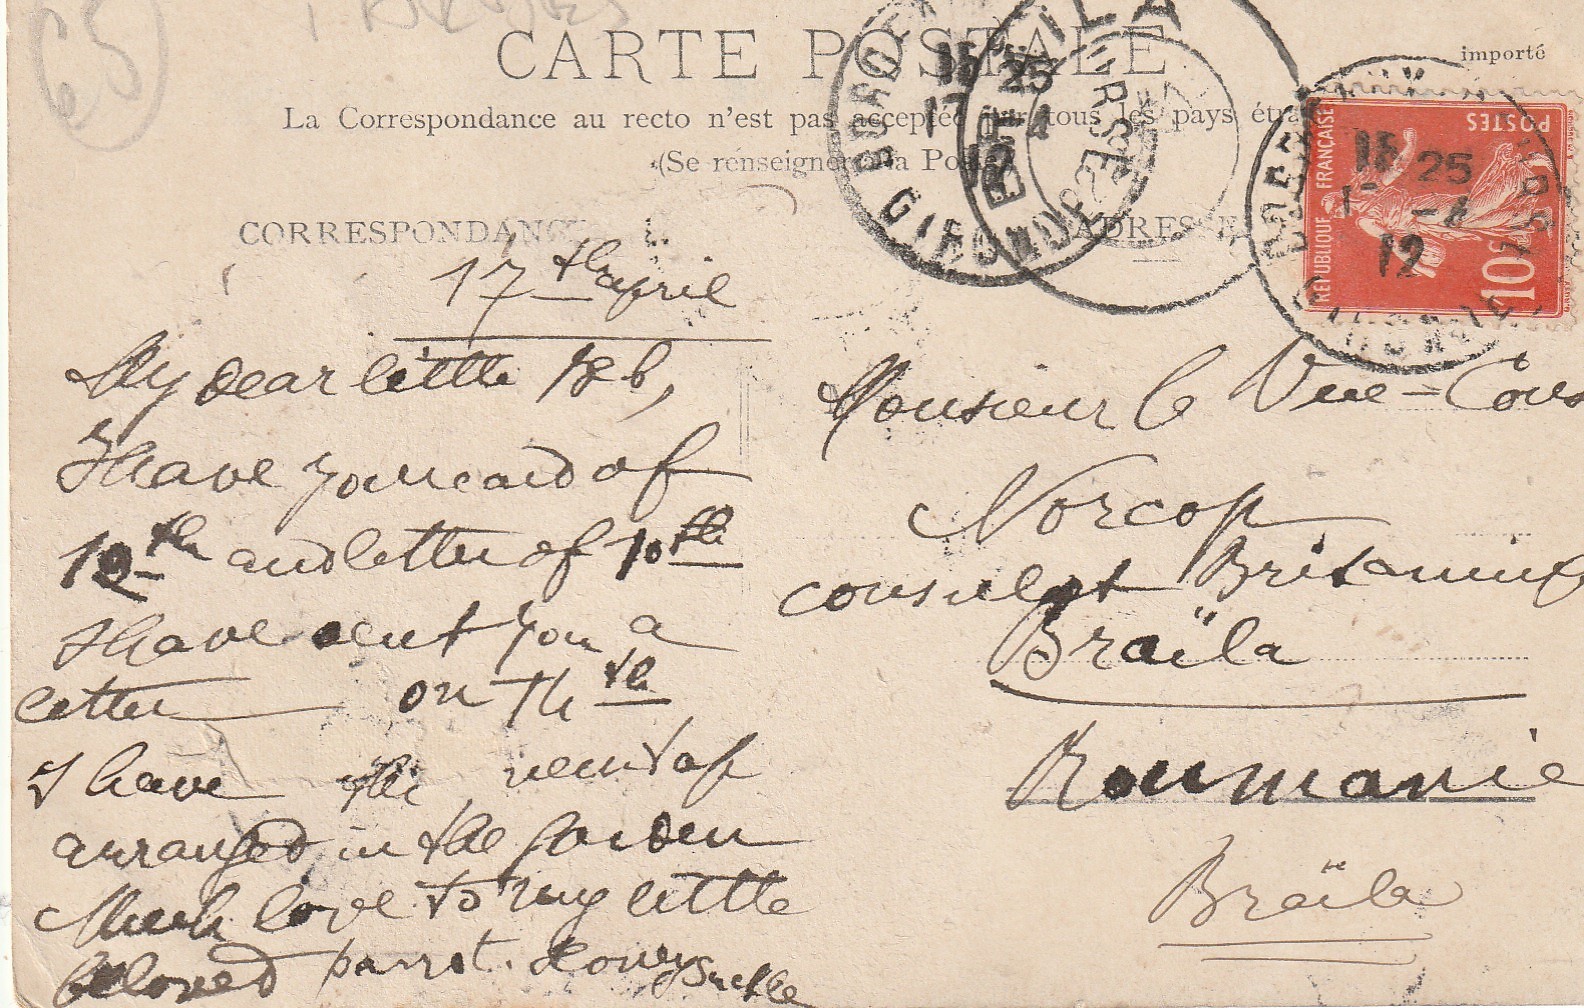 65
CARTE POSTALE
importé
La Correspondance au recto n'est pas acceptée par tous les pays étra
(Se renseigner à la Poste
CORRESPONDANCE
ADRESSE
RÉPUBLIQUE FRANÇAISE
POSTES
10c
15 25
17 -4
12
BORDEAUX
GIRONDE
BRAILA
17th april
My dear little
I have your card of
12th and letter of 10th
I have sent you a
letter on 7th
I have the
arranged in the garden
Much love to my little
beloved parrot. Honeysuckle
Monsieur le Vice-Cons
Norcop
consulat Britannique
Braïla
Roumanie
Braïla